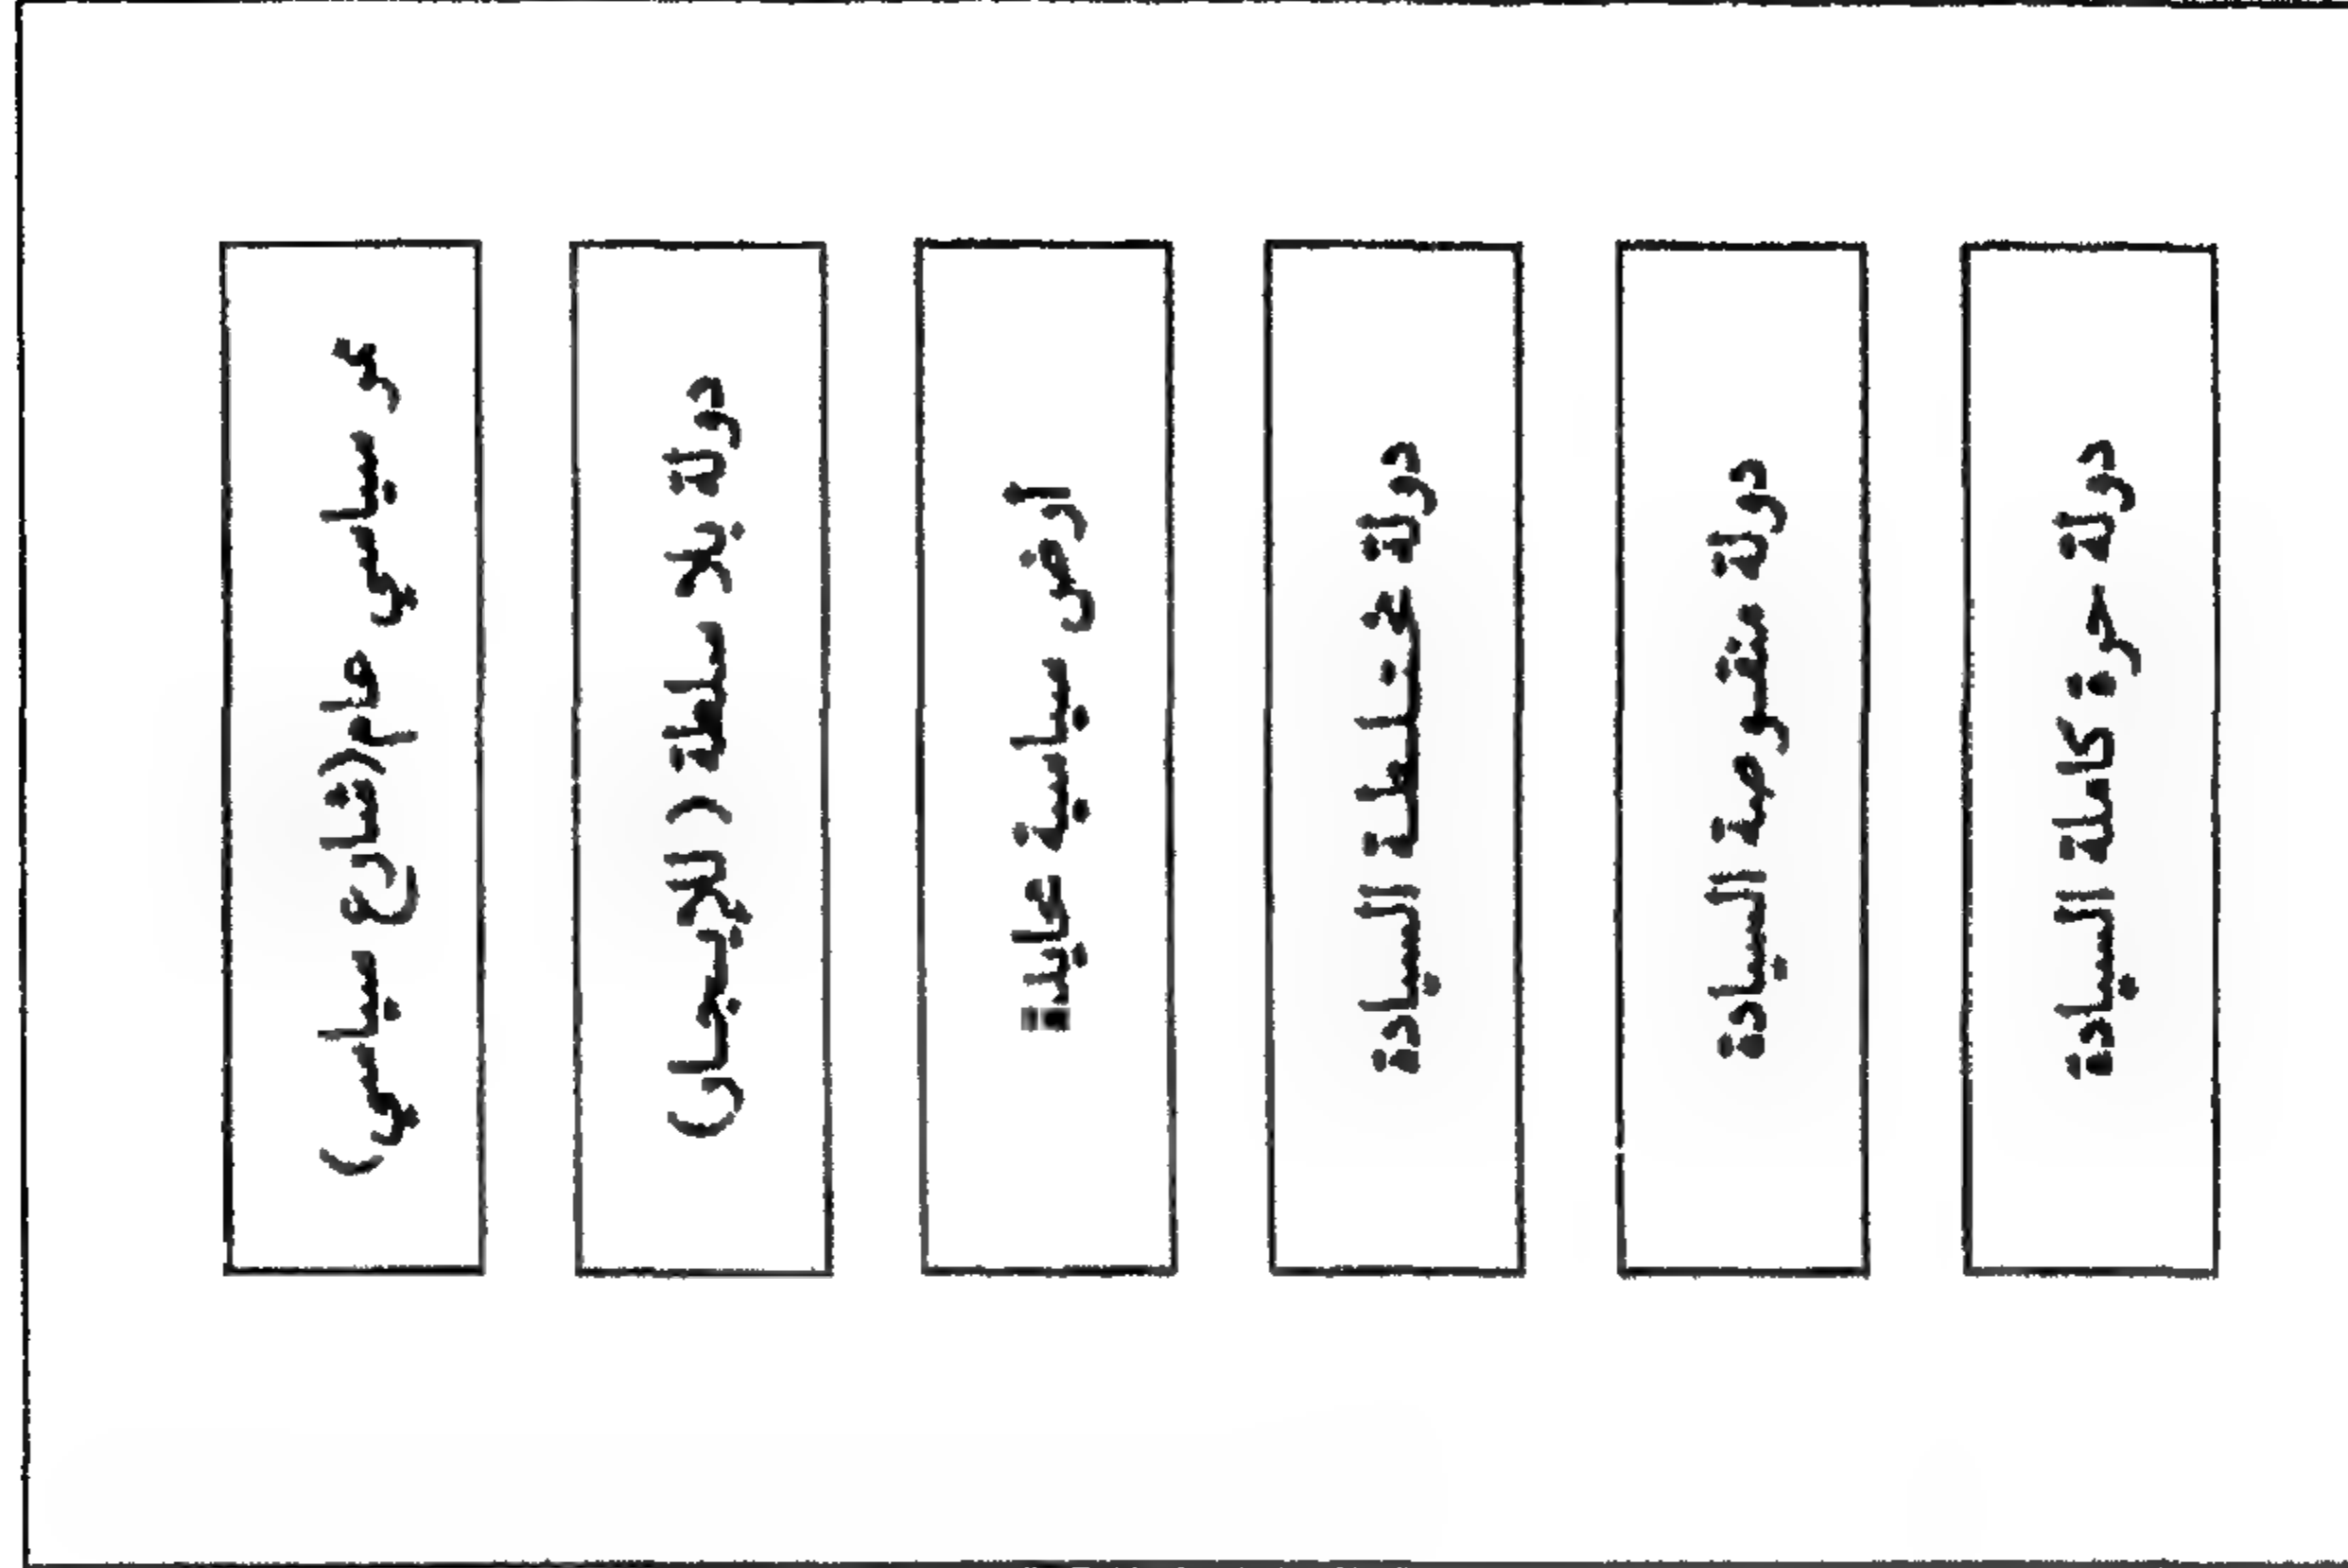 دولة حرة كاملة السيادة
دولة منقوصة السيادة
دولة مختلطة السيادة
أرض سياسية عايدة
دولة بلا سلطة (اللإيجان)
ممر سياسي عام(شارع سياسي)